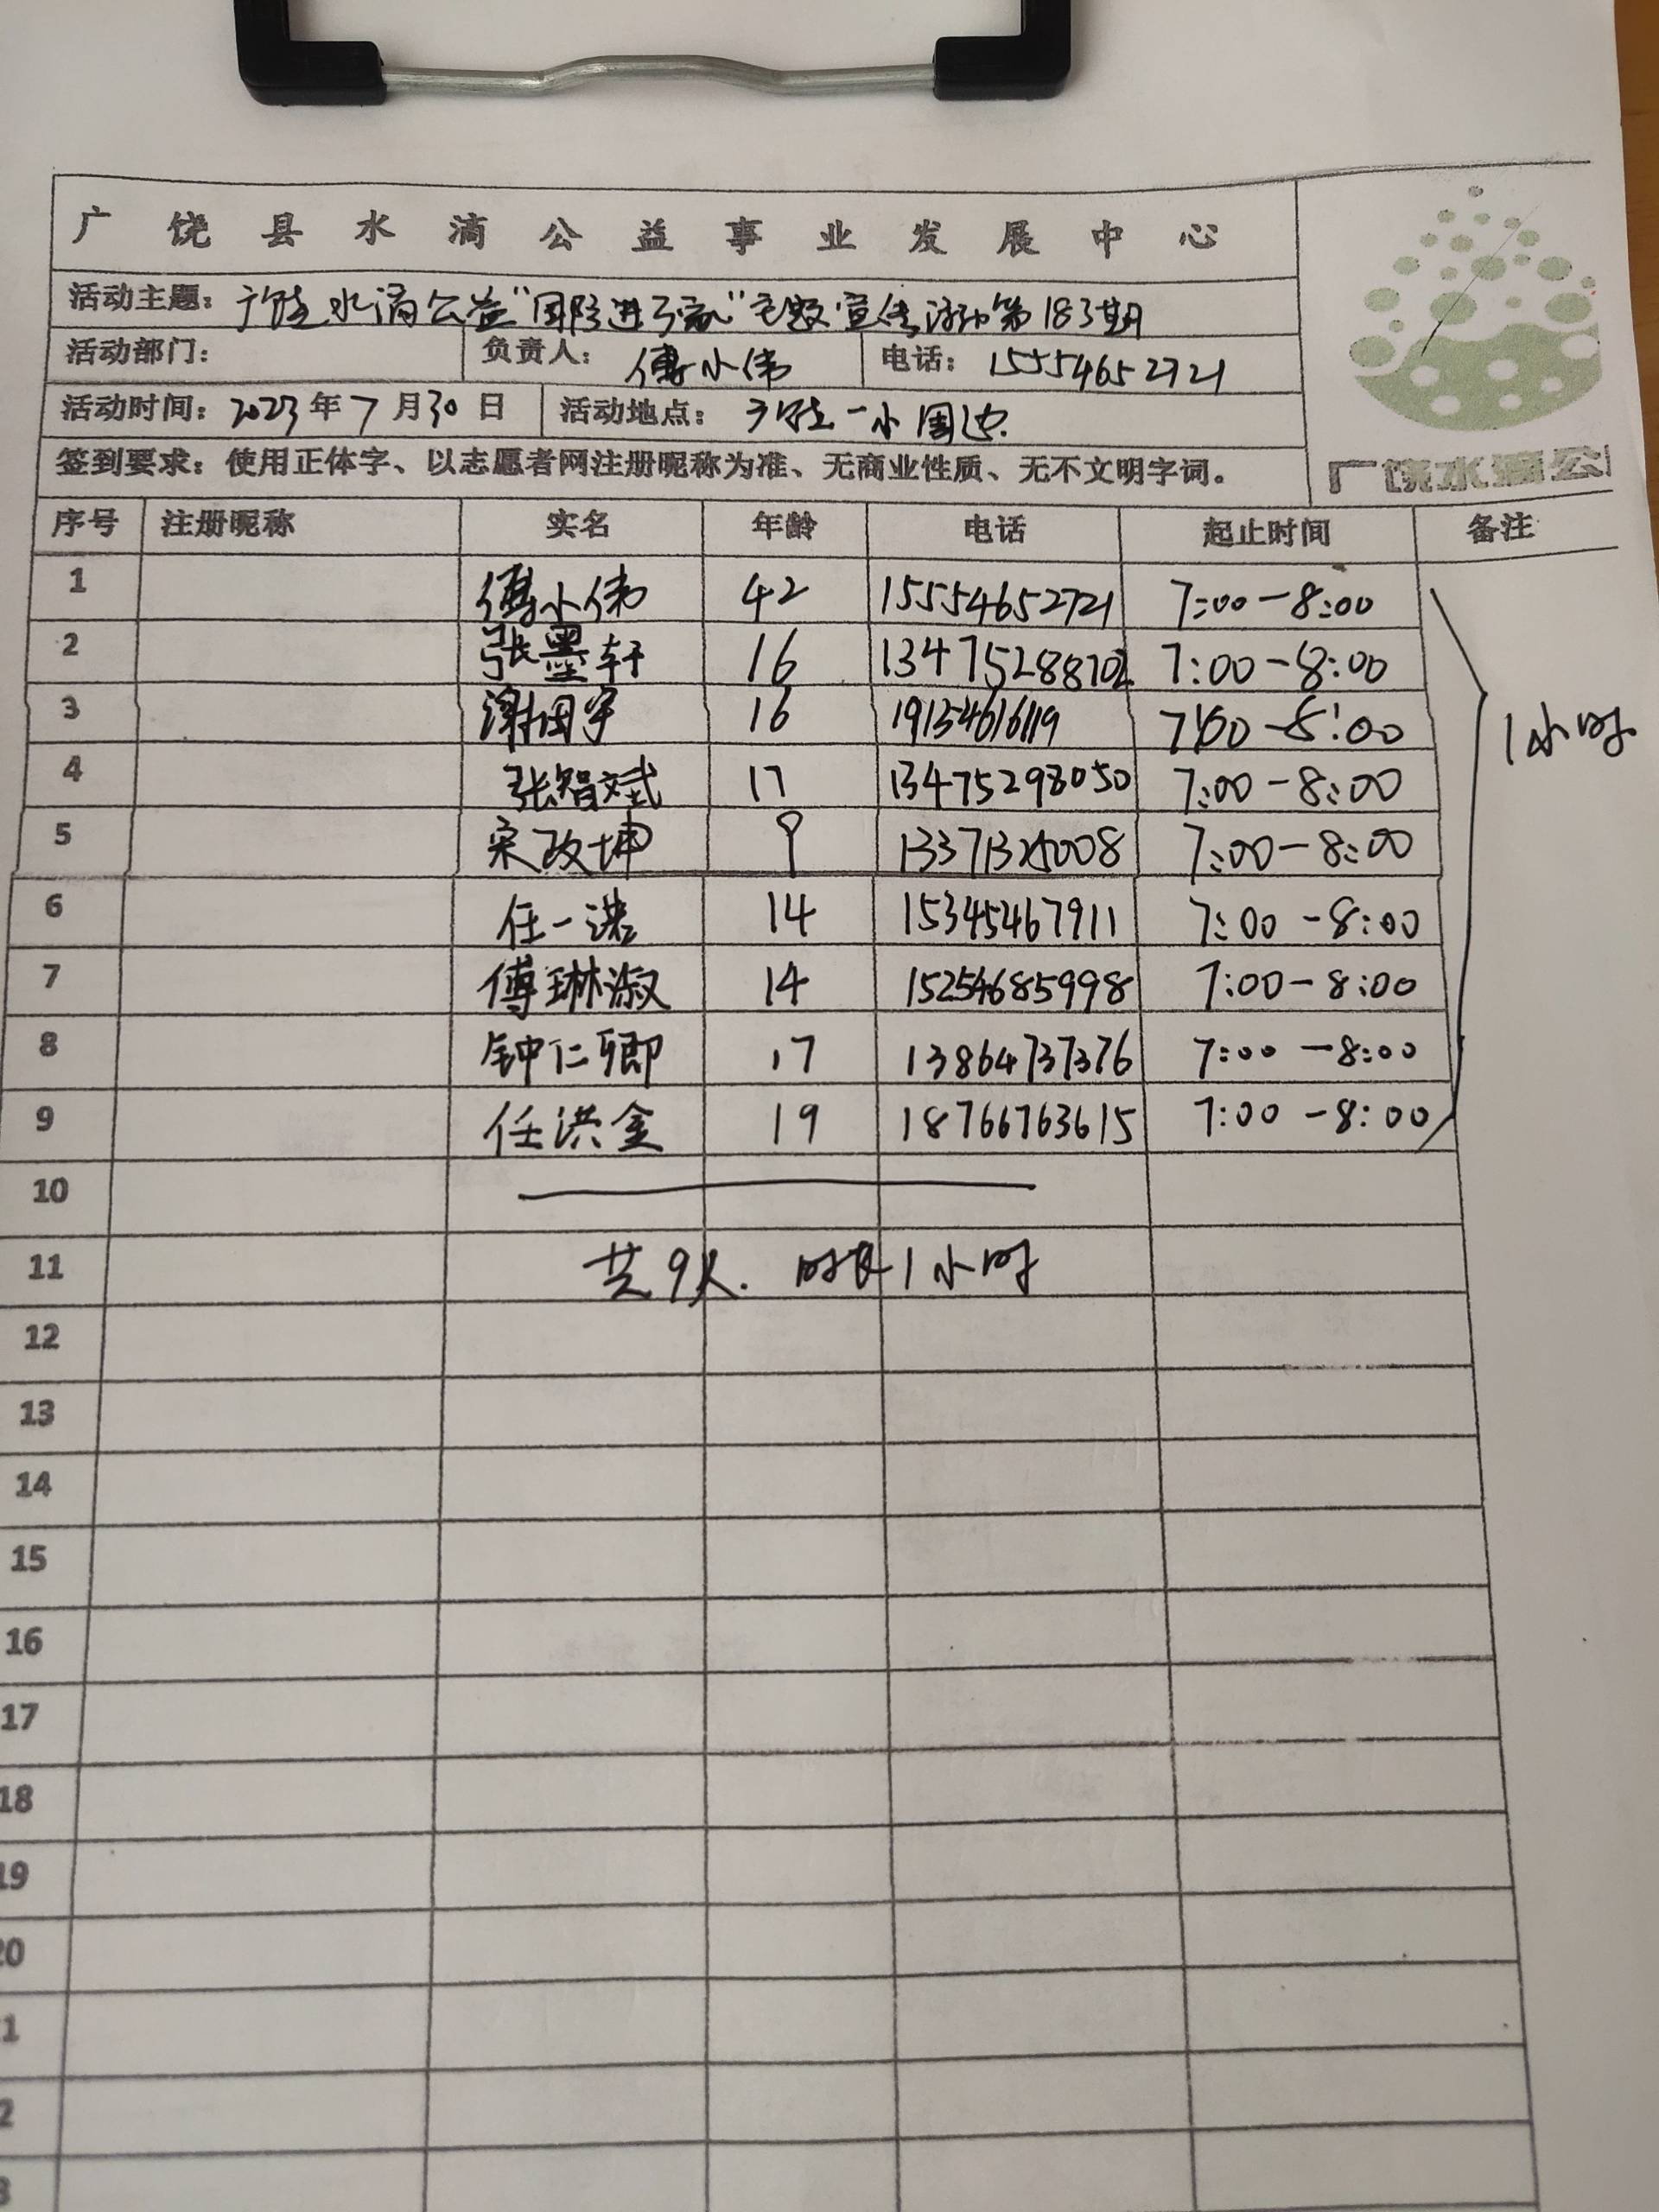 广饶县水滴公益事业发展中心
活动主题：广饶水滴公益"国防进万家"主题宣传活动第183期
活动部门： 负责人：傅小伟 电话：15554652721
活动时间：2023年7月30日 活动地点：广饶一小周边.
签到要求：使用正体字、以志愿者网注册昵称为准、无商业性质、无不文明字词。
广饶水滴公
序号 注册昵称 实名 年龄 电话 起止时间 备注
1 傅小伟 42 15554652721 7:00-8:00
2 张墨轩 16 13475288702 7:00-8:00
3 谢国宇 16 19154616119 7:00-8:00
1小时
4 张智斌 17 13475298050 7:00-8:00
5 宋改坤 9 13371325008 7:00-8:00
6 任一浩 14 15345467911 7:00-8:00
7 傅琳淑 14 15254685998 7:00-8:00
8 钟仁卿 17 13864737376 7:00-8:00
9 任洪金 19 18766763615 7:00-8:00
10
11 共9人. 时长1小时
12
13
14
15
16
17
18
19
20
1
2
3